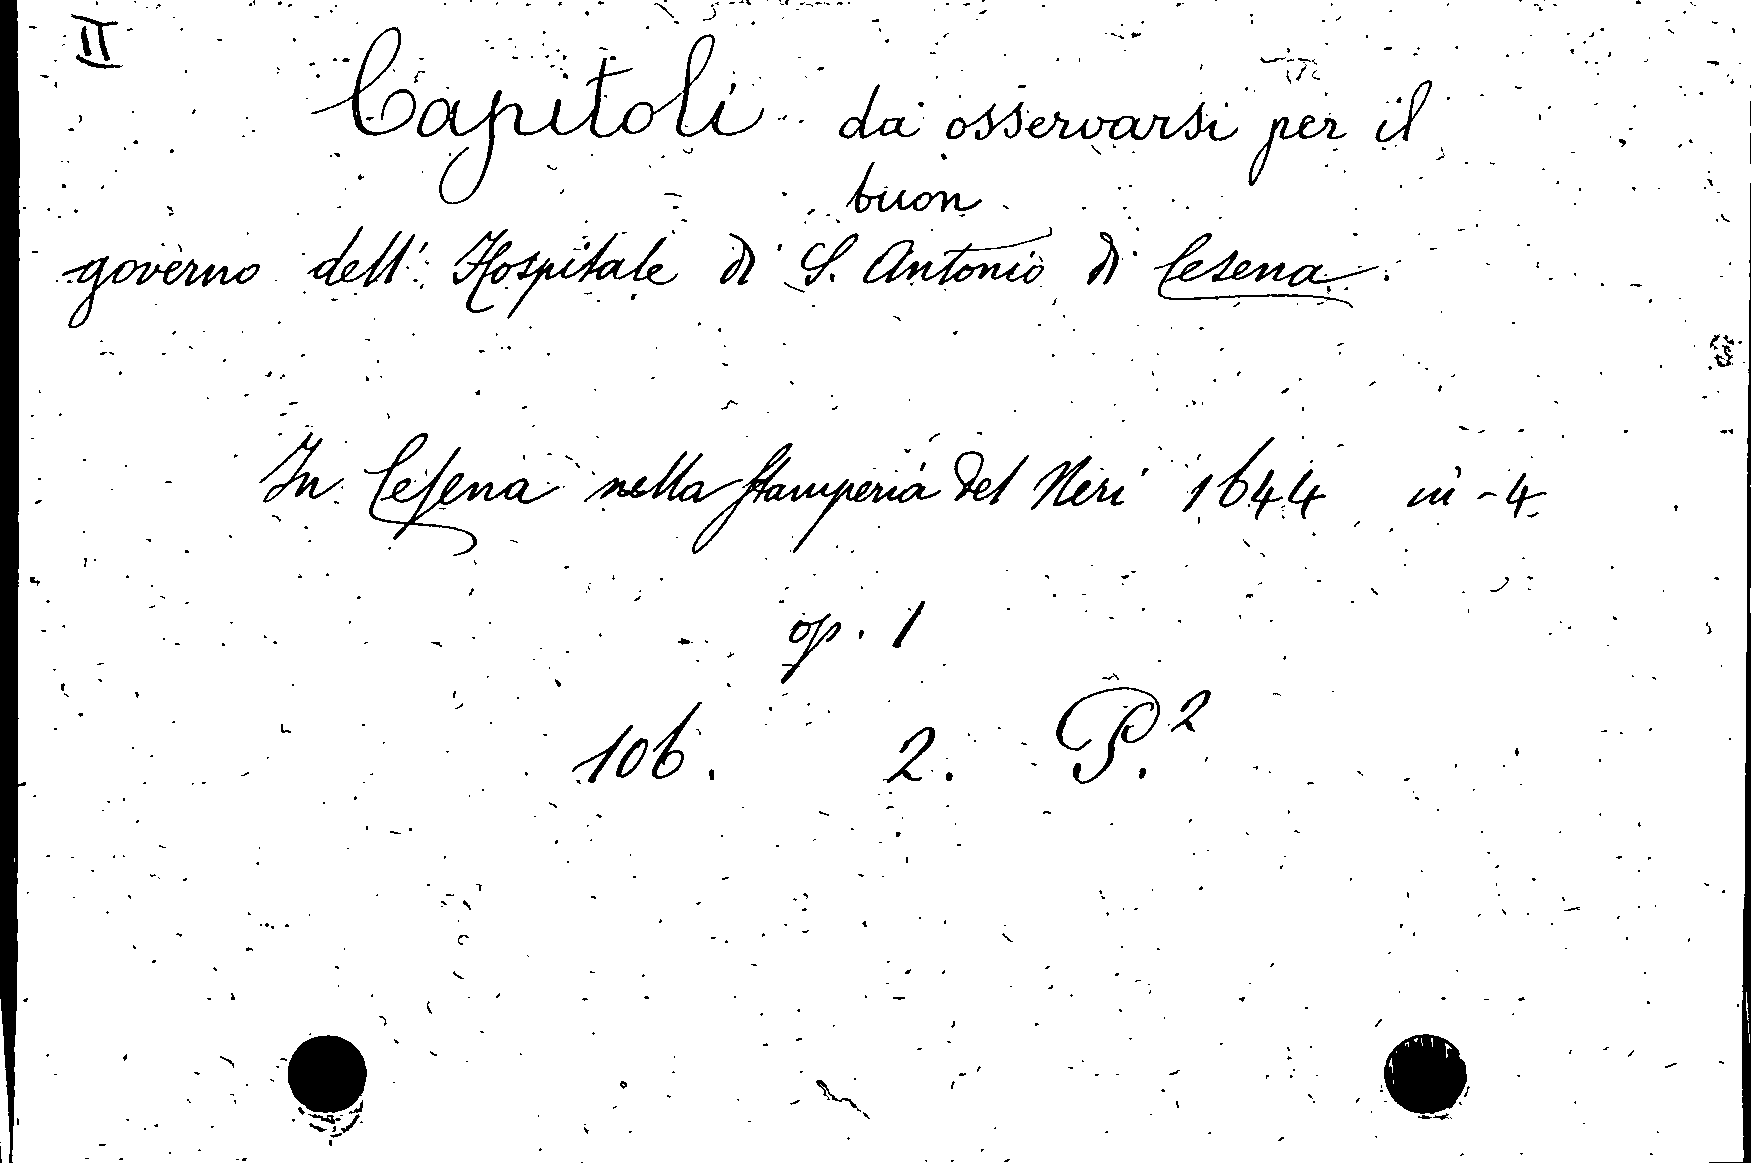 II
Capitoli da osservarsi per il
buon
governo dell' Hospitale di S. Antonio di Cesena.
In Cesena nella Stamperia del Neri 1644 in-4
op. 1
106. 2. P.²